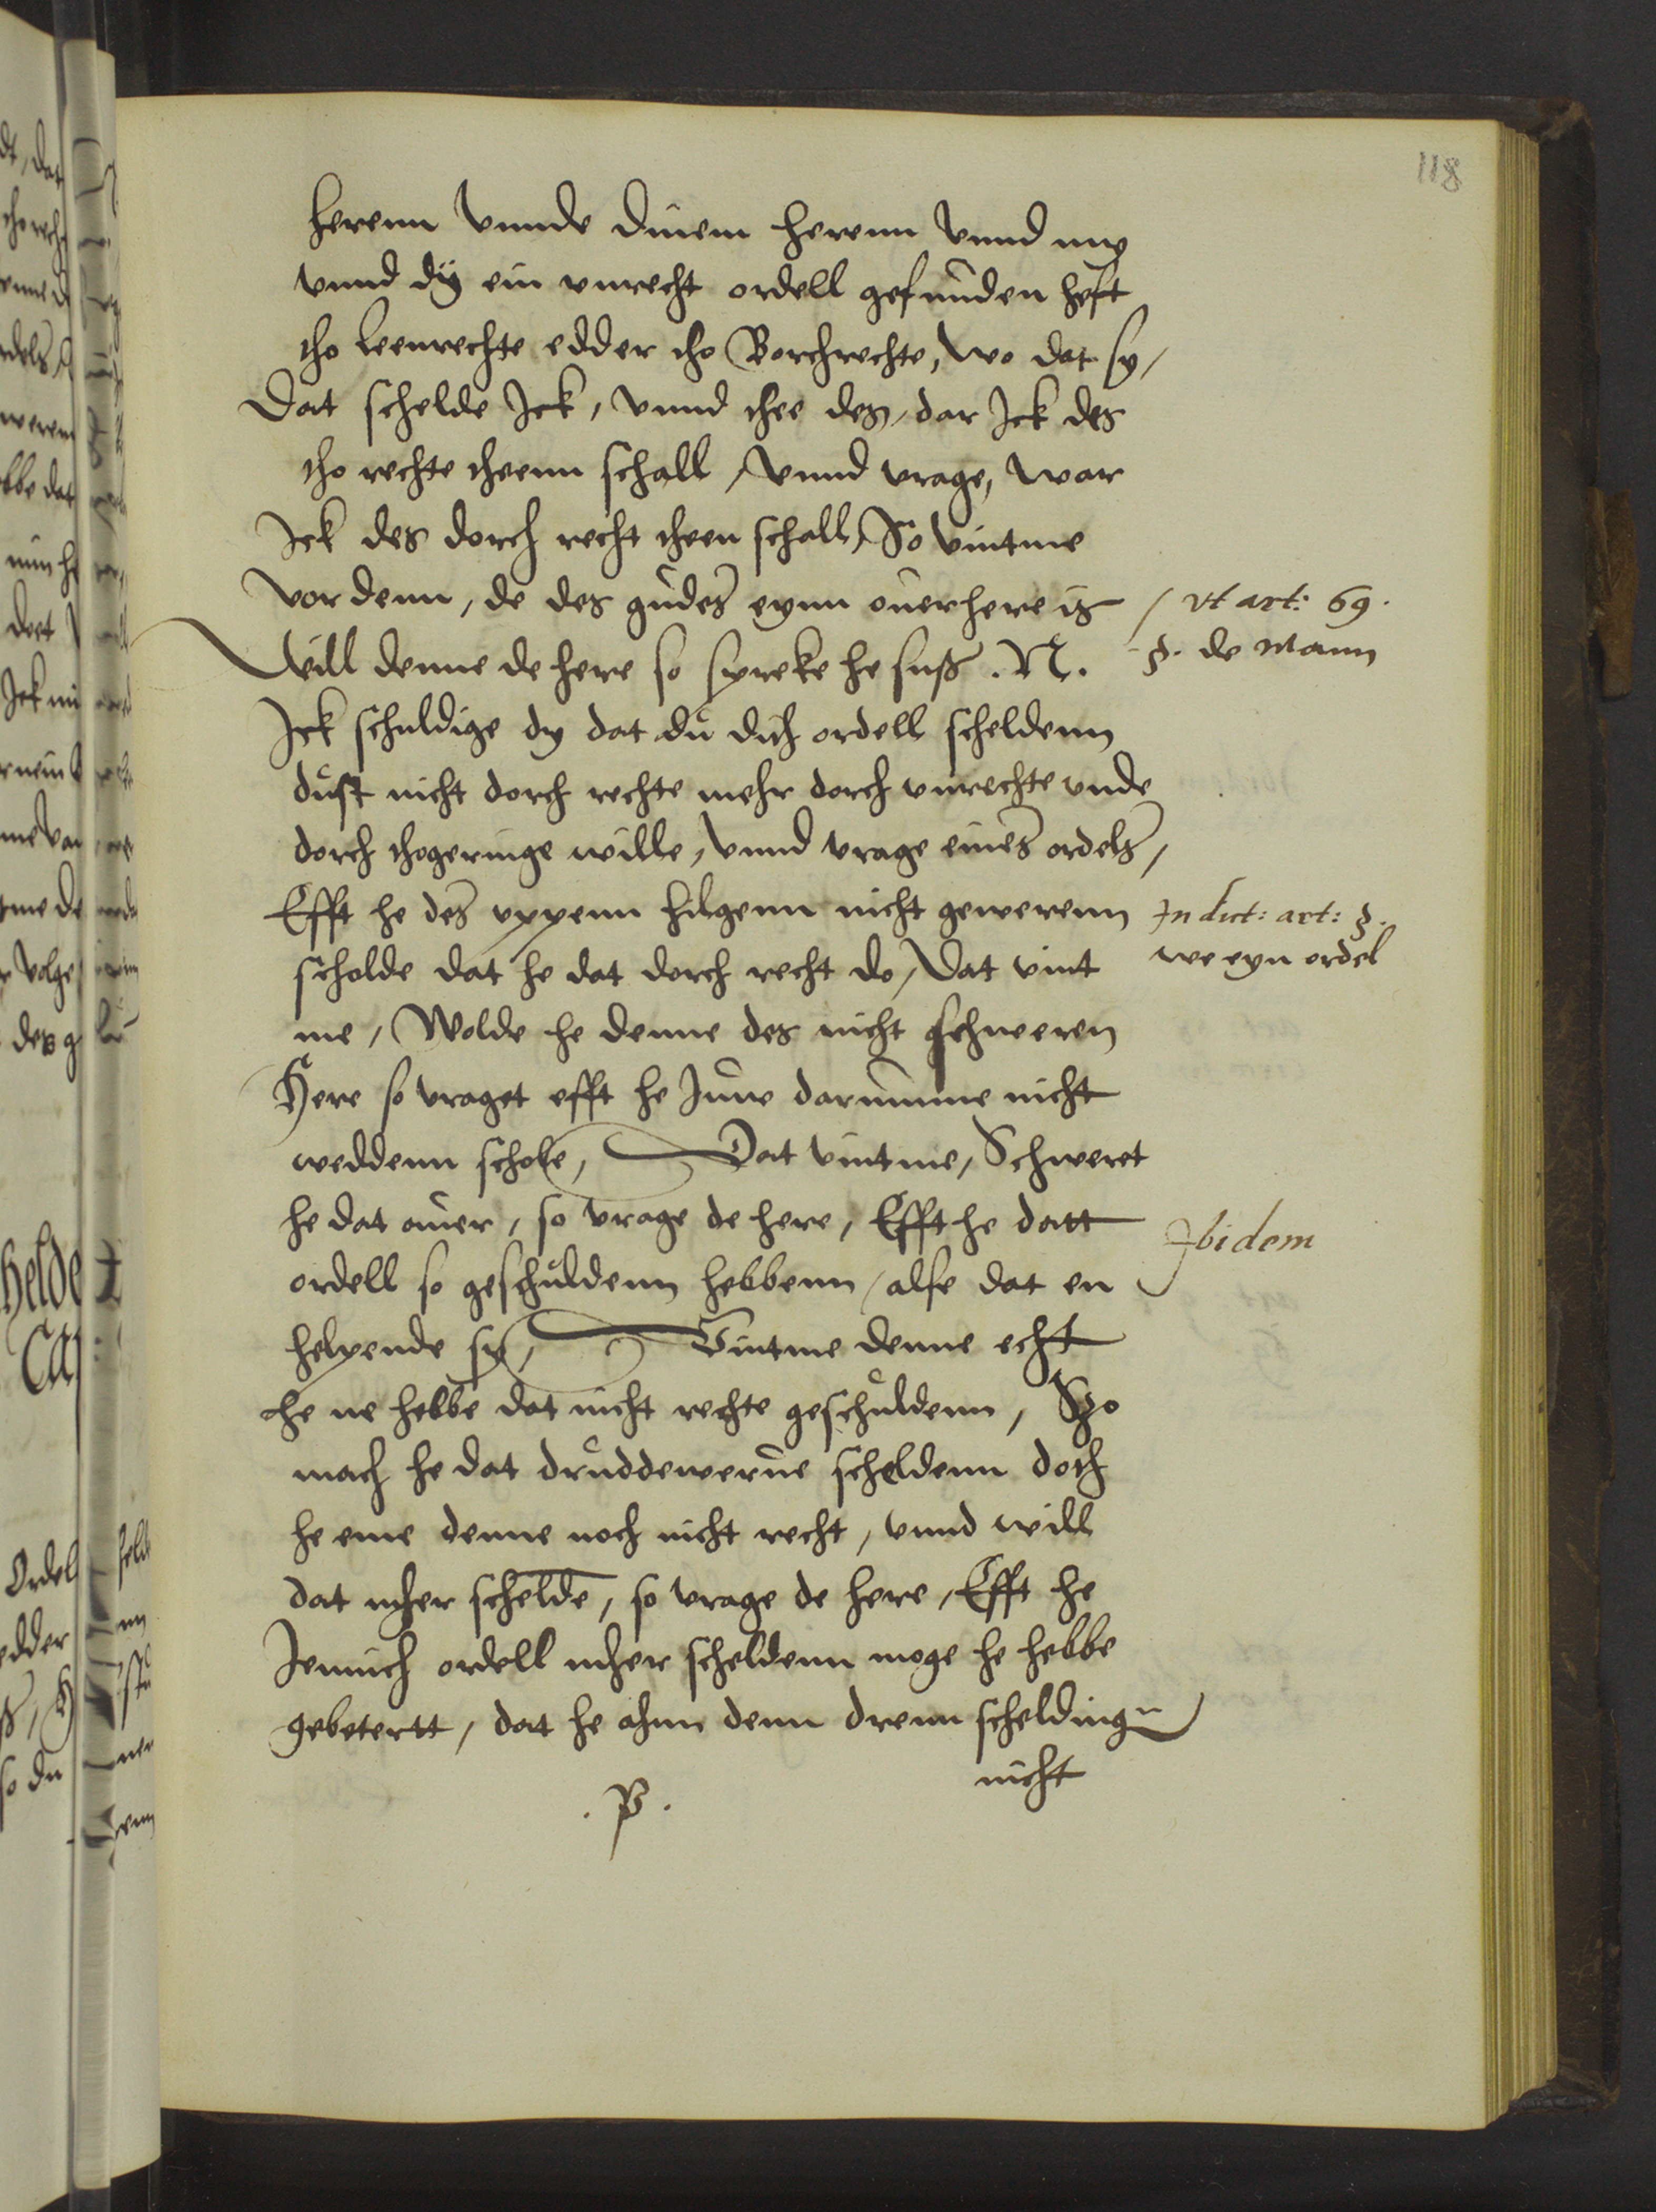 118
herenn vnnde dinem herenn vnnd my
vnnd dÿ ein vnrecht ordell gefunden heft
tho leenrechte edder tho Borchrechte, wo dat sy,
Dat schelde Ick, vnnd thee des, dar Ick des
tho rechte theenn schall, Vnnd vrage, war
Ick des dorch recht theen schall, So vintme
vor denn, de des gudes eynn ouerhere is
Will denne de here so spreke he suß. N.
Ick schuldige dy dat du dith ordell scheldenn
dust nicht dorch rechte mehr dorch vnrechte vnde
dorch thogeringe wille, Vnnd vrage eines ordels,
Efft he des vppenn hilgenn nicht gewerenn
scholde dat he dat dorch recht do, Dat vint
me, Wolde he denne des nicht schweren
Here so vraget efft he Juwe darumme nicht
weddenn schole, Dat vintme, Schweret
he dat auer, so vrage de here, Efft he datt
ordell so geschuldenn hebbenn, alse dat en
helpende sy, Vintme denne echt
he ne hebbe dat nicht rechte geschuldenn, Szo
mach he dat druddewerue scheldenn doch
he eme denne noch nicht recht, vnnd will
dat mher schelde, so vrage de here, Efft he
Jennich ordell mher scheldenn moge he hebbe
gebetertt, dat he ahnn denn drenn schelding
nicht
. P .
/ vt art: 69.
§. de Mann
In dict: art: §.
we eyn ordel
Ibidem